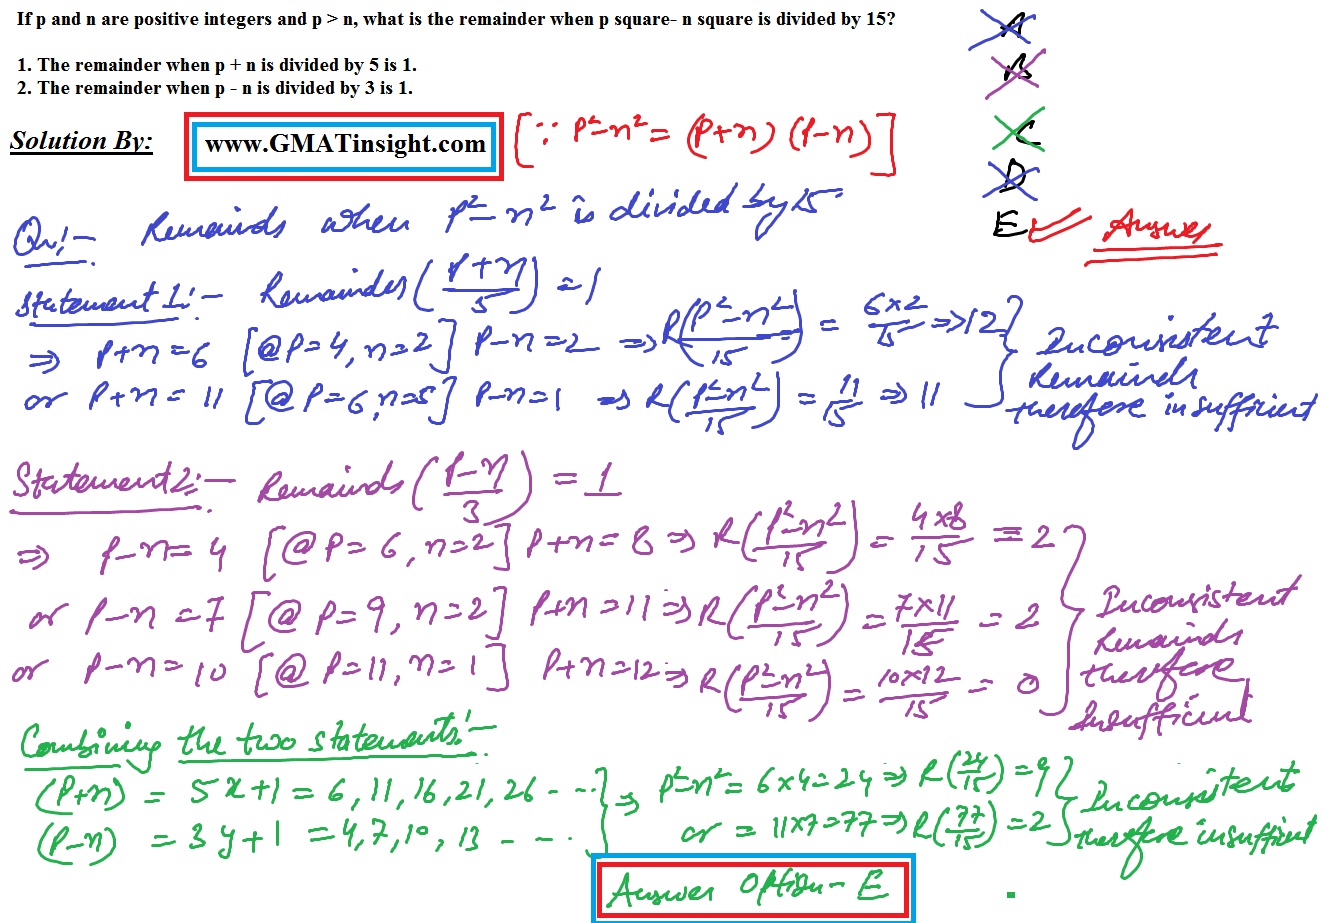 If p and n are positive integers and p > n, what is the remainder when p square- n square is divided by 15?
1. The remainder when p + n is divided by 5 is 1.
2. The remainder when p - n is divided by 3 is 1.
A
B
C
D
E ✓ Answer
Solution By: www.GMATinsight.com [∵ p²-n² = (p+n) (p-n)]
Qu!- Remainds when p²- n² is divided by 15
Statement 1:- Remainder (p+n/5) = 1
⇒ p+n=6 [@p=4, n=2] p-n=2 ⇒ R(p²-n²/15) = 6x2/15 ⇒ 12
or p+n= 11 [@p=6, n=5] p-n=1 ⇒ R(p²-n²/15) = 11/15 ⇒ 11
} Inconsistent
Remainders
therefore insufficient
Statement 2:- Remainds (p-n/3) = 1
⇒ p-n= 4 [@p=6, n=2] p+n= 8 ⇒ R(p²-n²/15) = 4x8/15 = 2
or p-n =7 [@p=9, n=2] p+n =11 ⇒ R(p²-n²/15) = 7x11/15 = 2
or p-n=10 [@p=11, n=1] p+n=12 ⇒ R(p²-n²/15) = 10x12/15 = 0
} Inconsistent
Remainds
therefore
Insufficient
Combining the two statements:-
(p+n) = 5x+1 = 6, 11, 16, 21, 26 - - -
(p-n) = 3y+1 = 4, 7, 10, 13 - - -
} ⇒ p²-n² = 6x4=24 ⇒ R(24/15) = 9
or = 11x7=77 ⇒ R(77/15) = 2
} Inconsistent
therefore insufficient
Answer Option- E